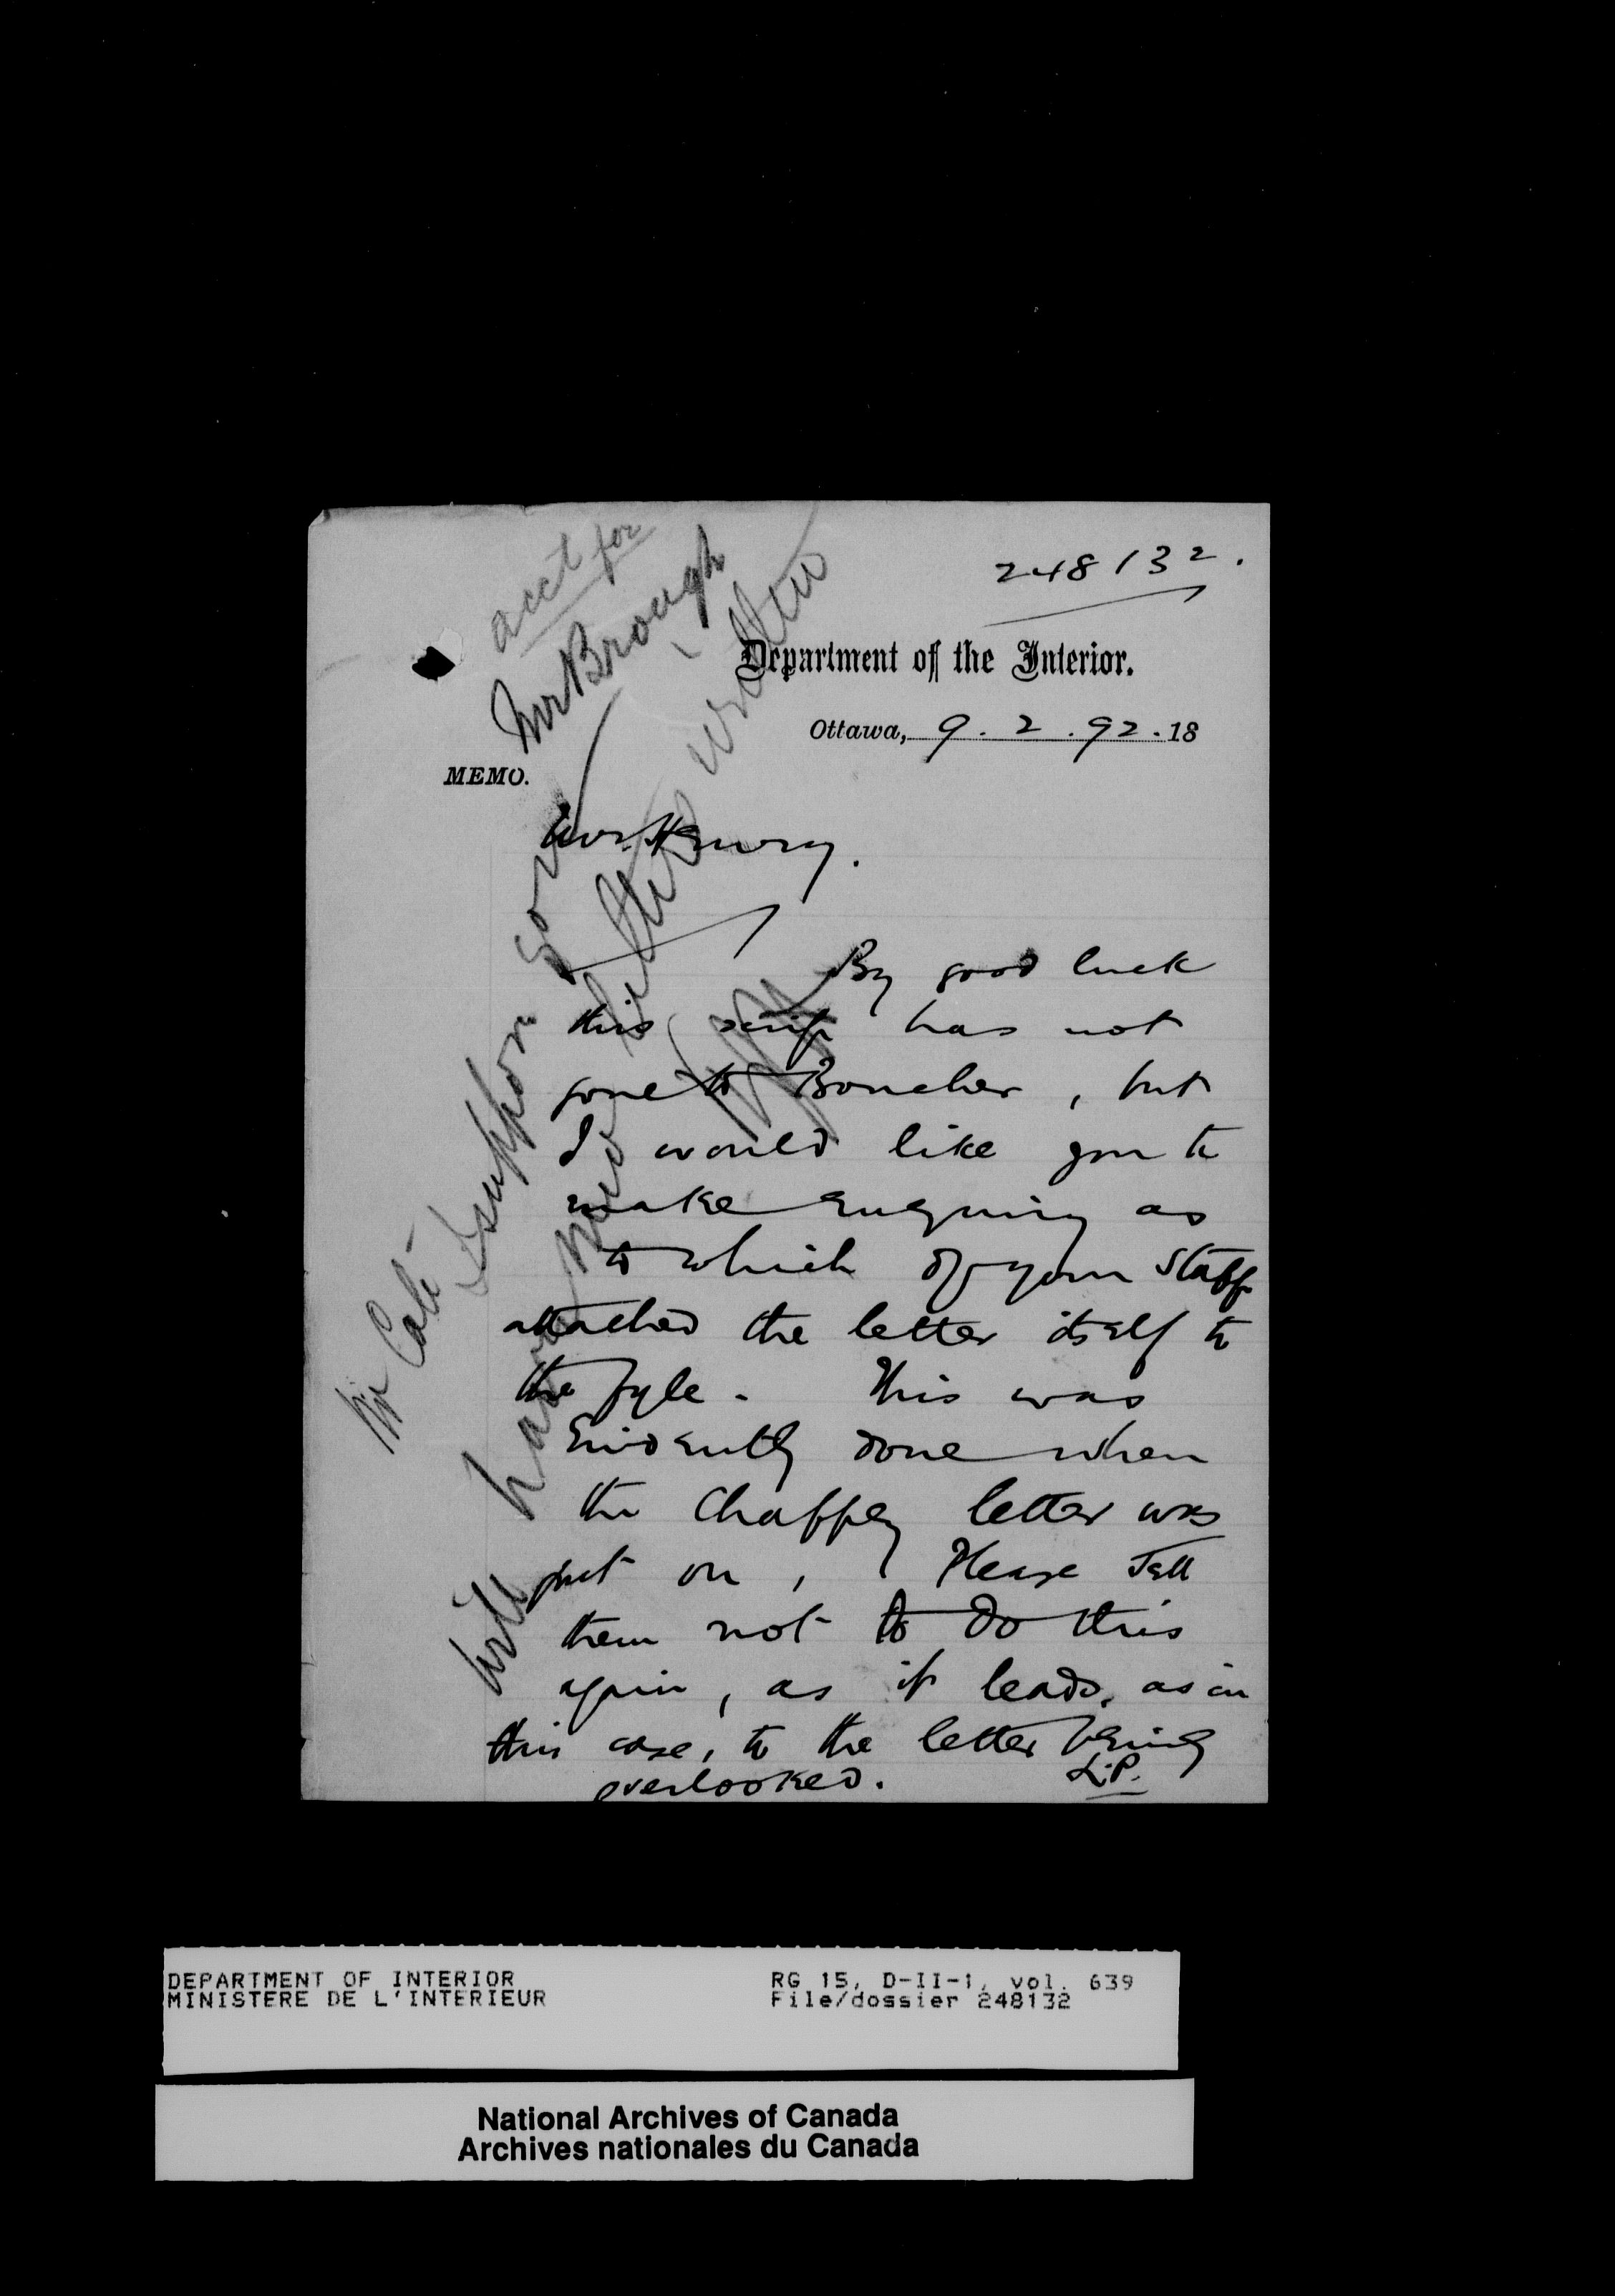 248132.
Department of the Interior.
Ottawa, 9.2.92.18
MEMO.
Mr. Henry.
By good luck
this scrip has not
gone to Boucher, but
I would like you to
make enquiry as
to which of your staff
attached the letter itself to
the fyle. This was
Evidently done when
the Chaffey letter was
put on, Please Tell
them not to do this
again, as it leads, as in
this case, to the letter being
overlooked. L.P.
acct for
Mr Brough
Mr Coté
I suppose you
will have new letters written
DEPARTMENT OF INTERIOR
MINISTERE DE L'INTERIEUR
RG 15, D-II-1, vol. 639
File/dossier 248132
National Archives of Canada
Archives nationales du Canada